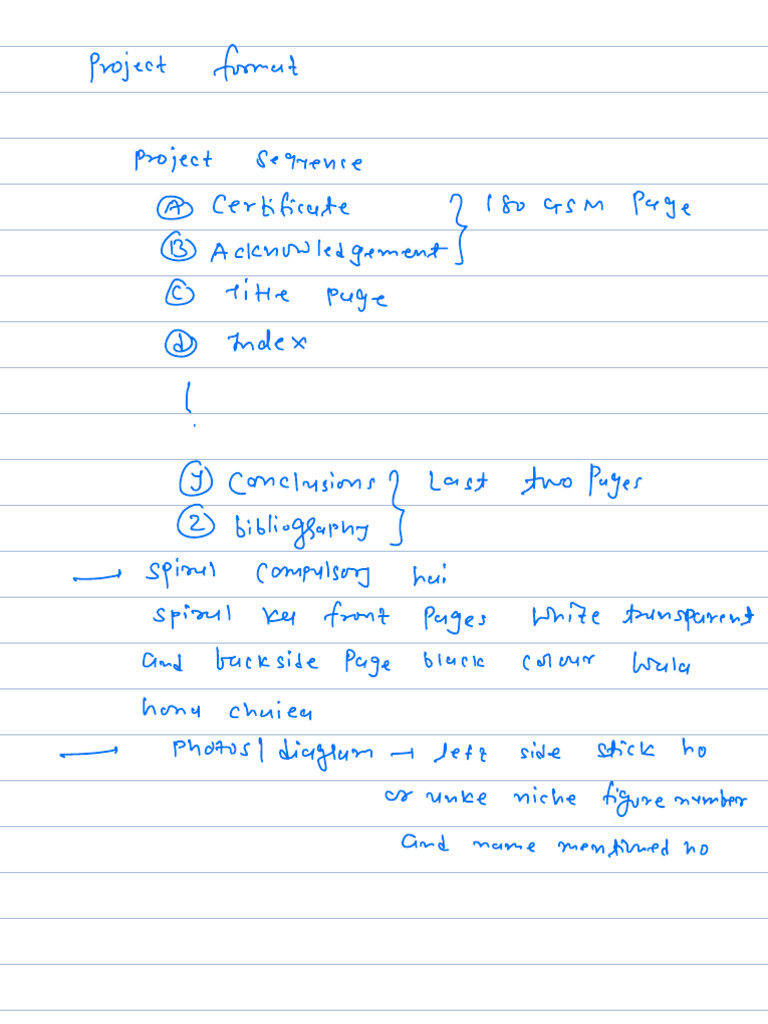 Project format
Project sequence
(A) Certificate } 180 GSM Page
(B) Acknowledgement
(C) Title page
(d) Index
(y) Conclusions } Last two Pages
(z) bibliography
→ spiral compulsory hai
spiral ka front Pages white transparent
and backside Page black colour wala
hona chaiea
→ Photos/diagram → left side stick ho
or unke niche figure number
and name mentioned ho